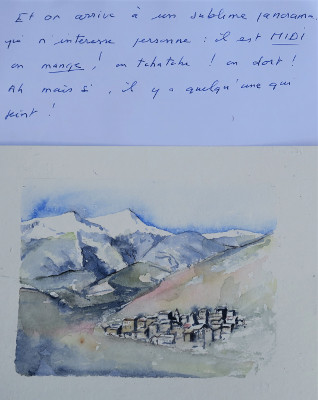 Et on arrive à un sublime panorama,
qui n'intéresse personne : il est MIDI
on mange ! on tchatche ! on dort !
Ah mais si, il y a quelqu'une qui
peint !